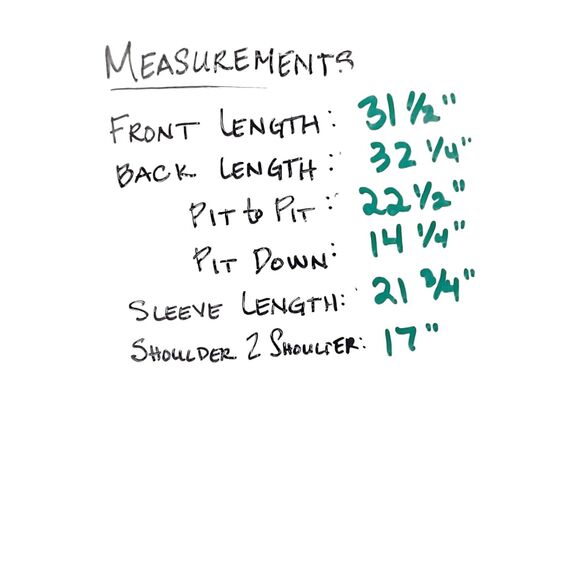 MEASUREMENTS
FRONT LENGTH: 31 1/2"
BACK LENGTH: 32 1/4"
PIT to PIT: 22 1/2"
PIT DOWN: 14 1/4"
SLEEVE LENGTH: 21 3/4"
SHOULDER 2 SHOULDER: 17"